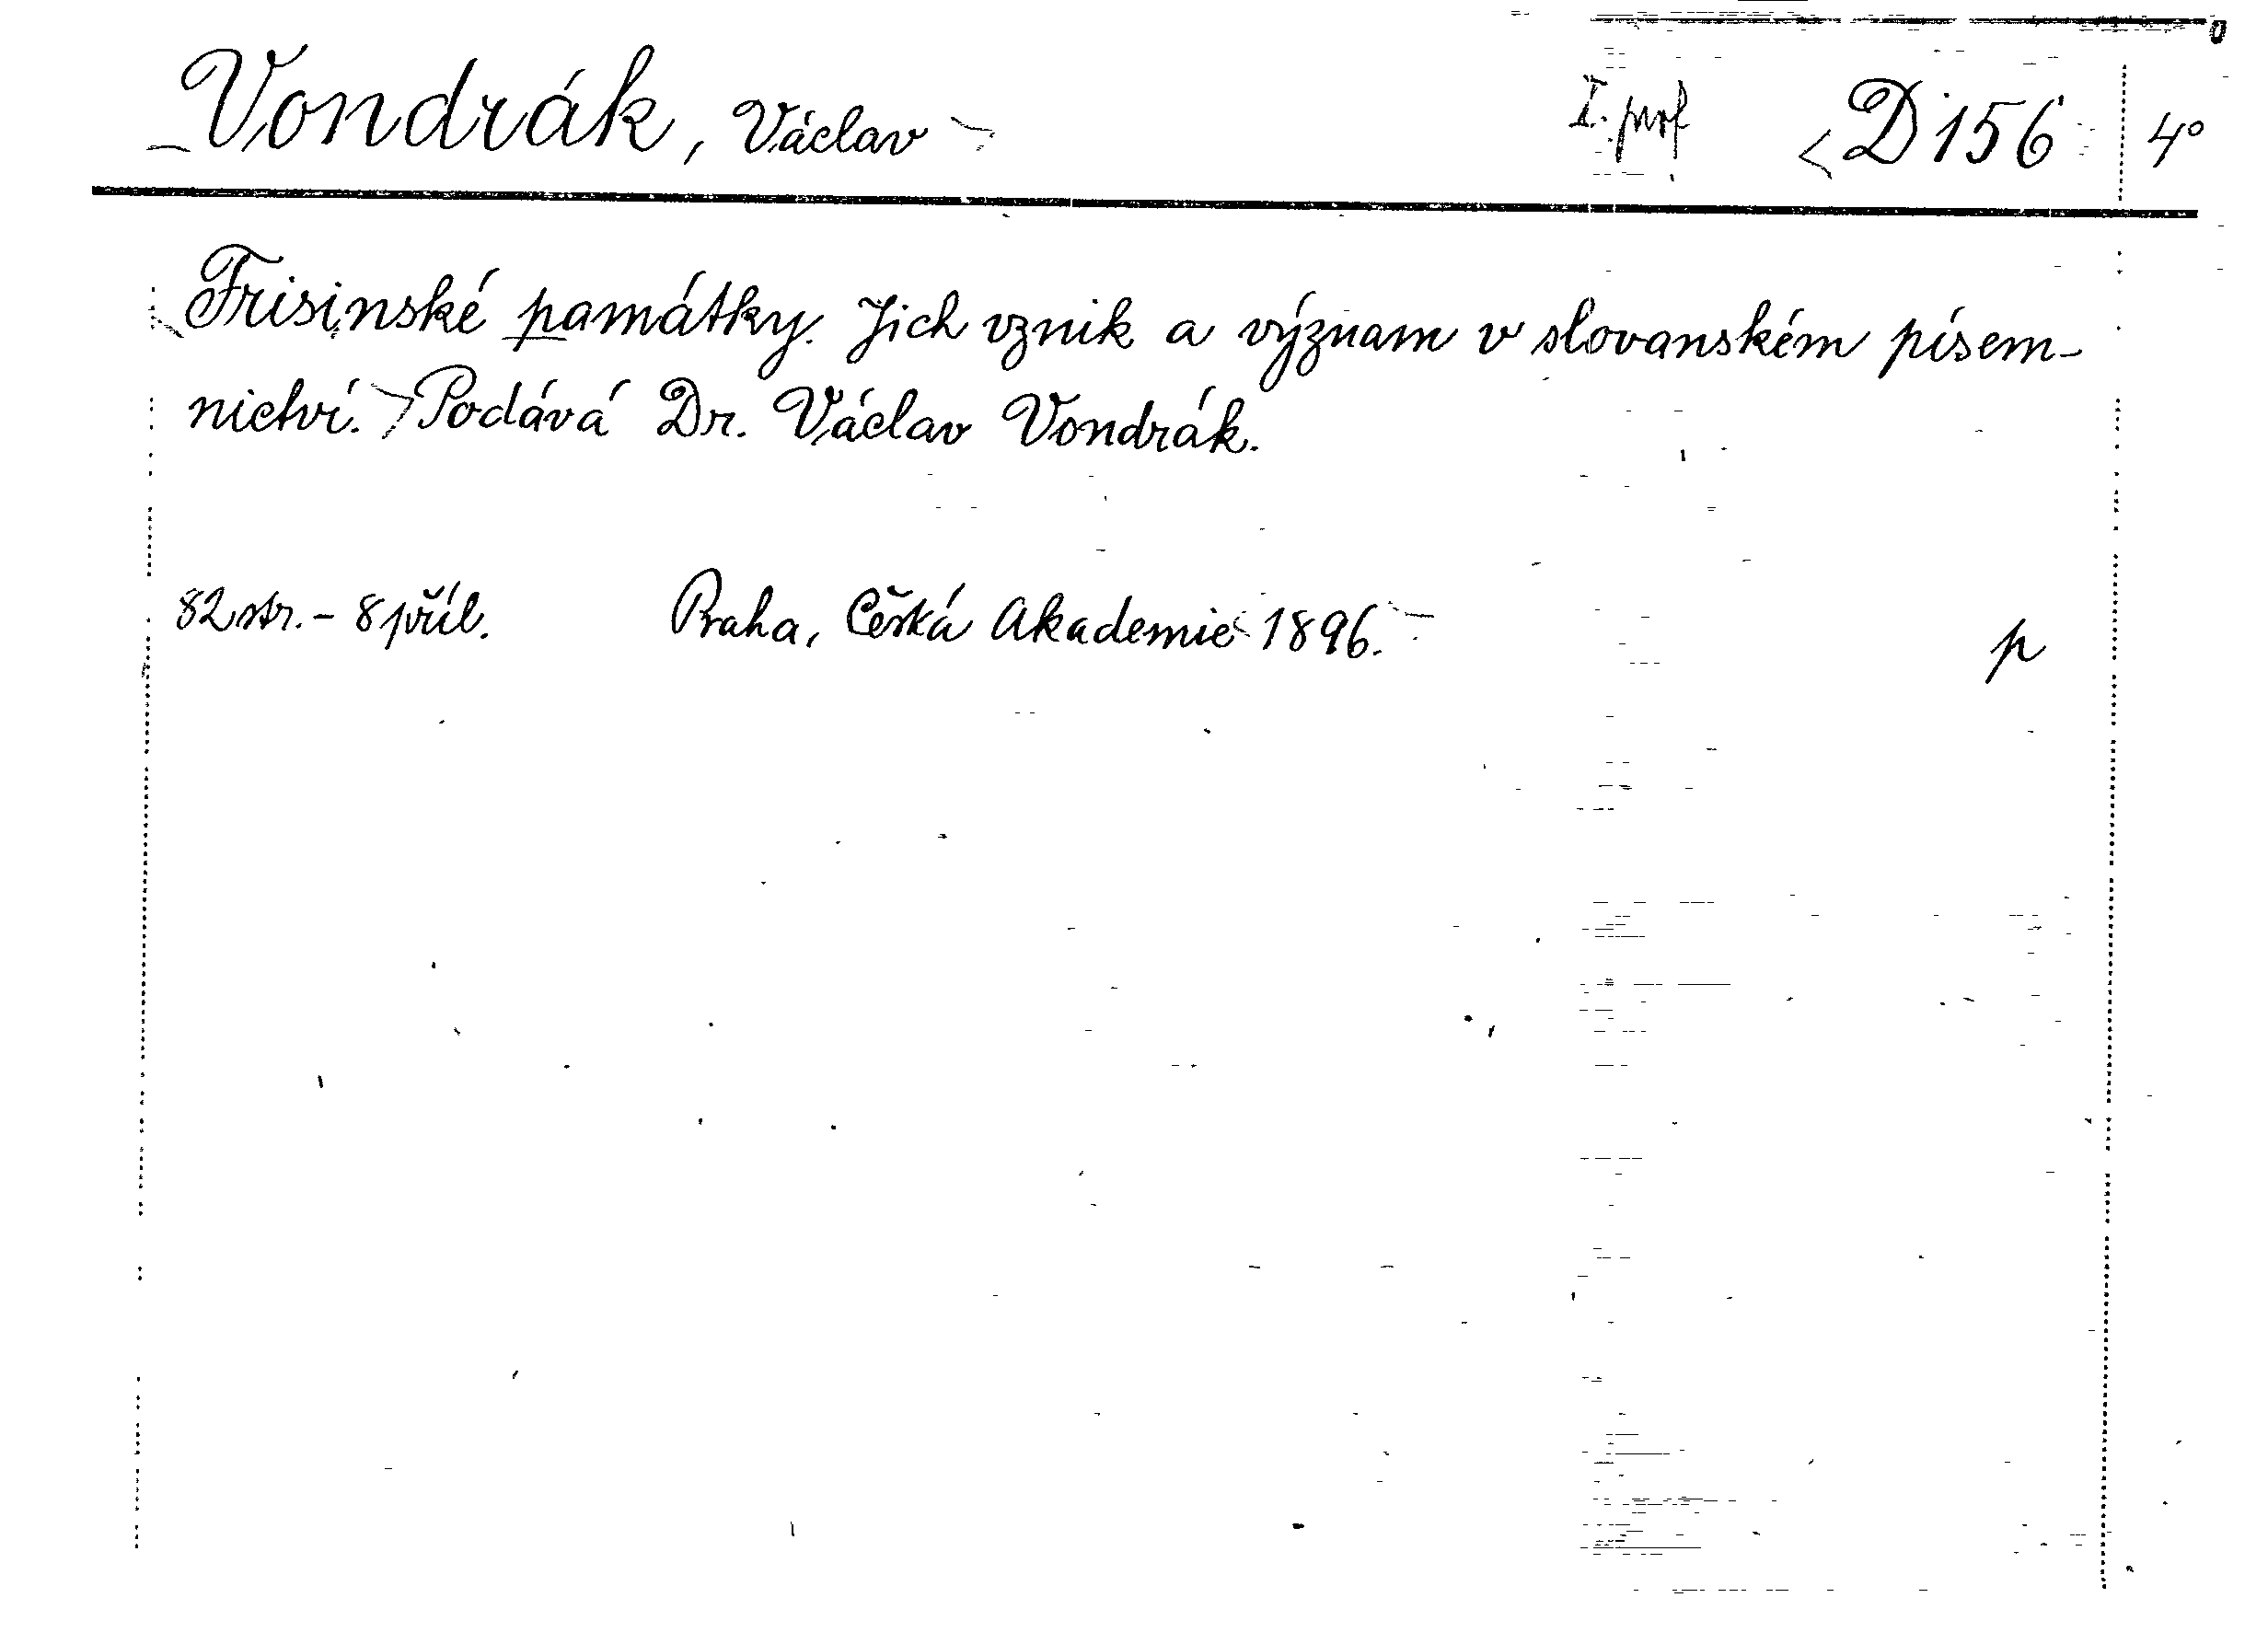 Vondrák, Václav I. prof D 156 4°
Frisinské památky. Jich vznik a význam v slovanském písem-
nictví. Podává Dr. Václav Vondrák.
82 str. - 8 příl. Praha, Česká Akademie 1896. p